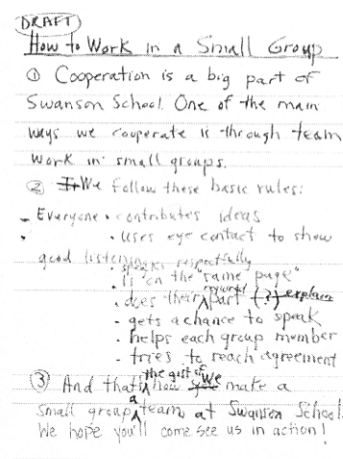 DRAFT
How to Work in a Small Group
① Cooperation is a big part of
Swanson School. One of the main
ways we cooperate is through team
work in small groups.
② It We follow these basic rules:
- Everyone • contributes ideas
• uses eye contact to show
good listening
• speaks respectfully
• is on the "same page"
• does their required part (?) explain
• gets a chance to speak
• helps each group member
• tries to reach agreement
③ And that's the gist of how you We make a
small group a team at Swanson School.
We hope you'll come see us in action!